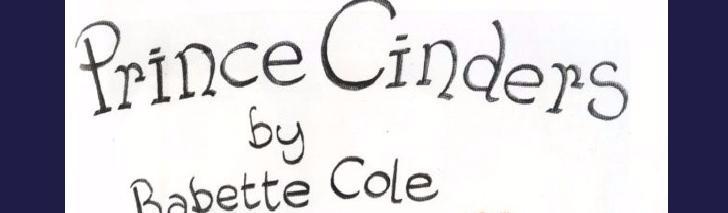 Prince Cinders
by
Babette Cole